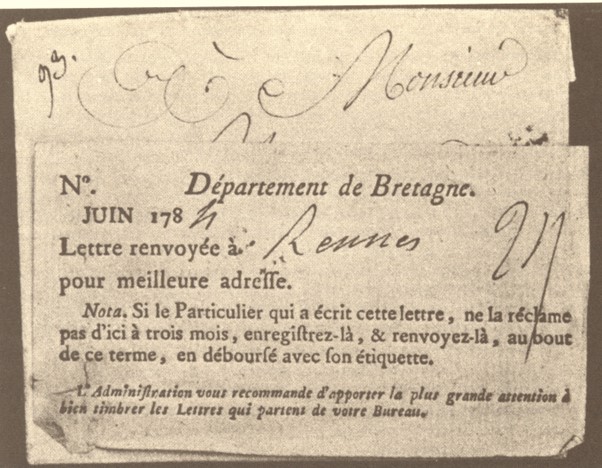 93.
à Monsieur
N°. Département de Bretagne.
JUIN 1784
Lettre renvoyée à Rennes
pour meilleure adreſſe.
Nota. Si le Particulier qui a écrit cette lettre, ne la réclame
pas d'ici à trois mois, enregiſtrez-là, & renvoyez-là, au bout
de ce terme, en débourſé avec ſon étiquette.
L'Adminiſtration vous recommande d'apporter la plus grande attention à
bien timbrer les Lettres qui partent de votre Bureau.